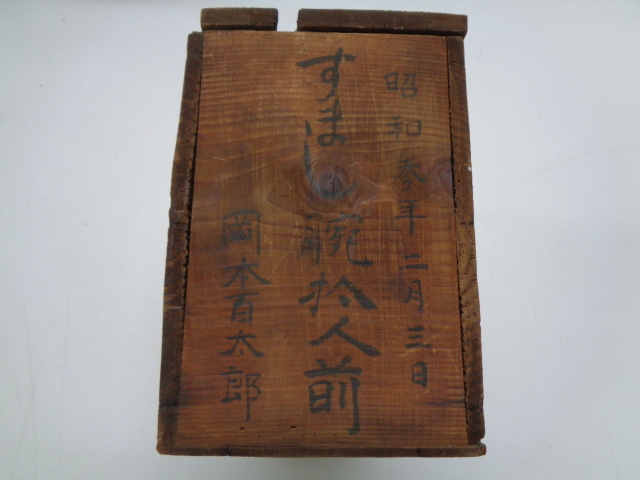 昭和参年二月三日
すまし椀拾人前
岡本百太郎